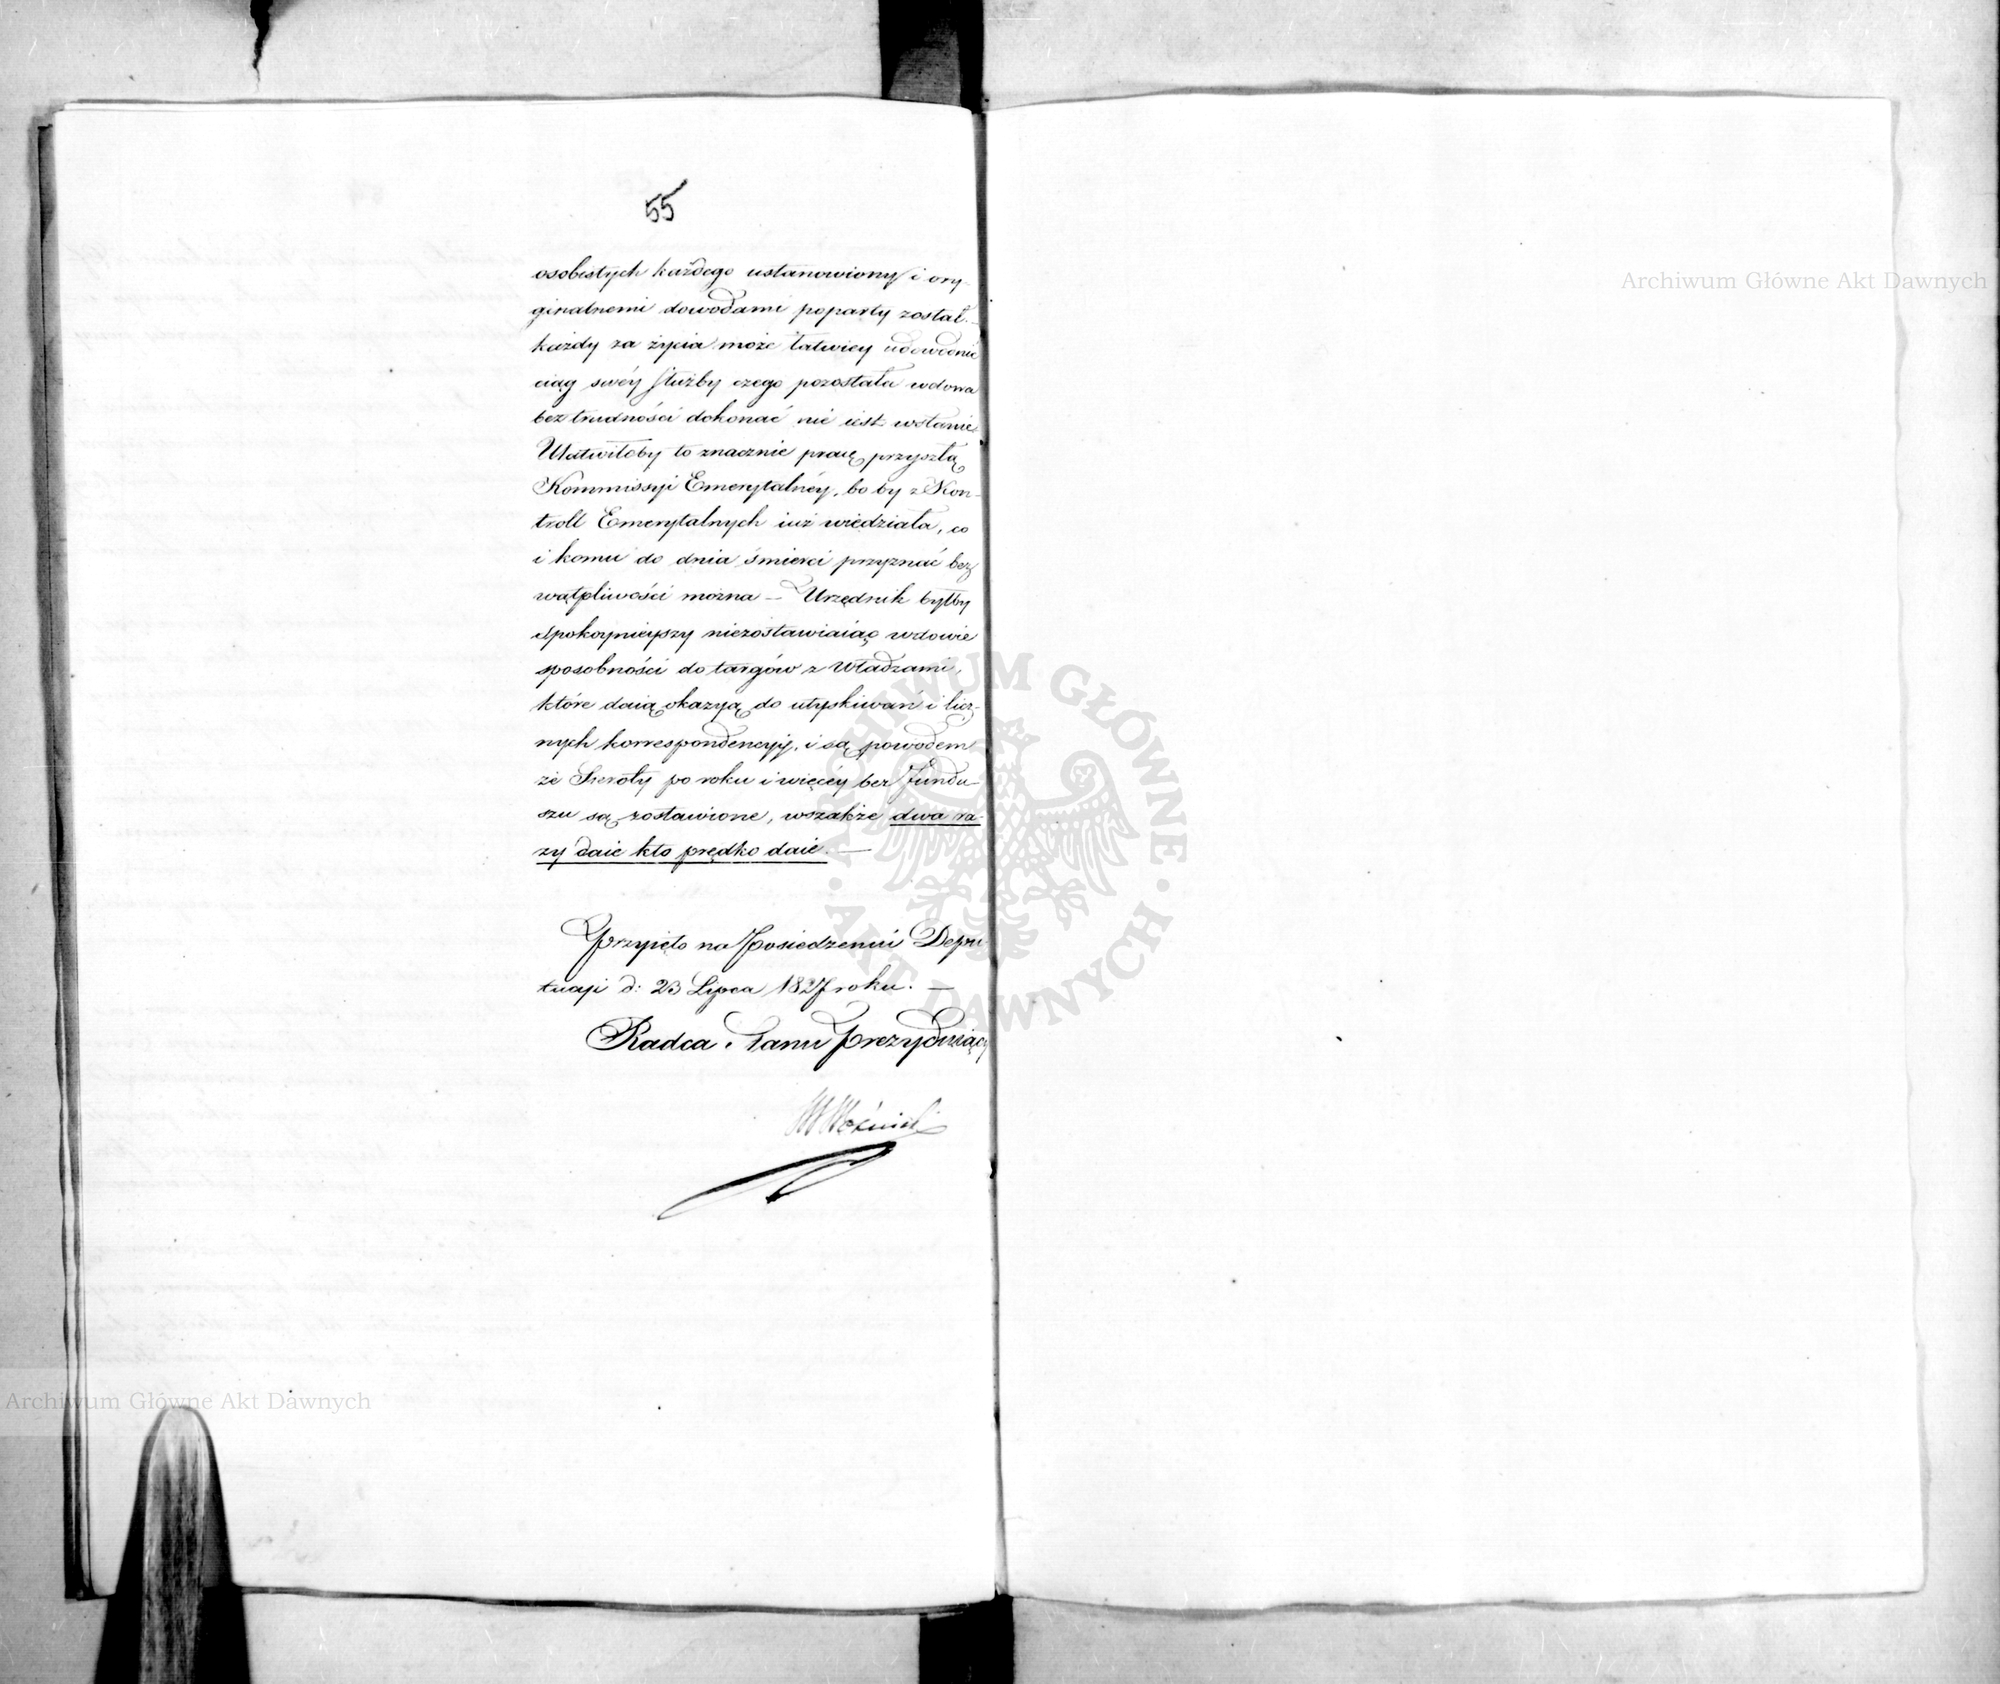 55
osobistych każdego ustanowiony i ory-
ginalnemi dowodami poparty został. –
każdy za życia może łatwiey udowodnić
ciąg swéy służby czego pozostała wdowa
bez trudności dokonać nie iest wstanie
Ułatwiłoby to znacznie pracę przyszłą
Kommissyi Emerytalnéy, bo by z Kon-
troll Emerytalnych iuż wiedziała, co
i komu do dnia śmierci przyznać bez
wątpliwości można – Urzędnik byłby
spokoynieyszy niezostawiaiąc wdowie
sposobności do targów z Władzami,
które daią okazyą do utyskiwań i licz-
nych korrespondencyj, i są powodem
że Sieroty po roku i więcéy bez fundu-
szu są zostawione, wszakże dwa ra-
zy daie kto prędko daie. —
Przyięto na Posiedzeniu Depu
tacyi d: 23 Lipca 1827 roku. —
Radca Stanu Prezyduiący
Archiwum Główne Akt Dawnych
Archiwum Główne Akt Dawnych
ARCHIWUM GŁÓWNE · AKT DAWNYCH ·